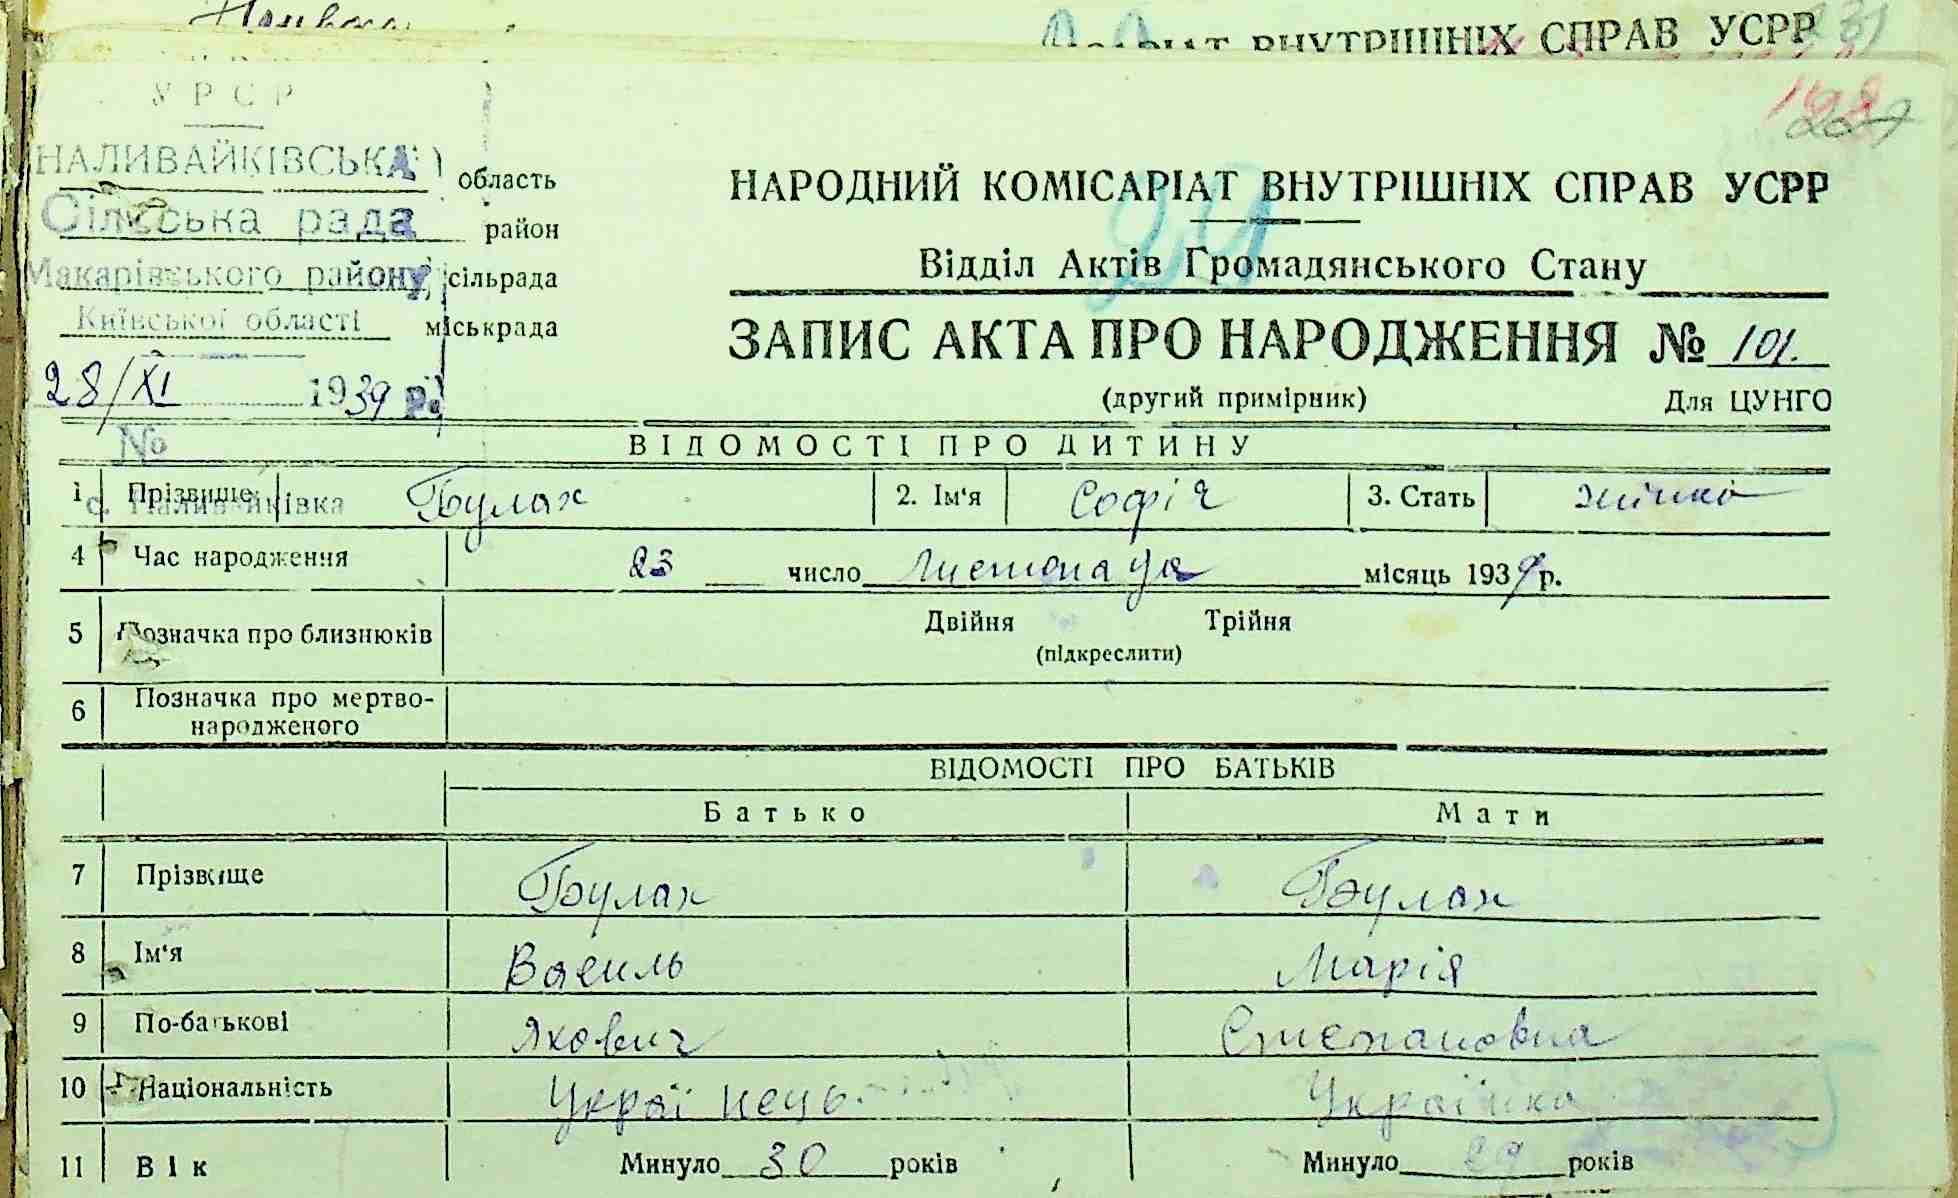 СПРАВ УСРР 231
У Р С Р
НАЛИВАЙКІВСЬКА область
Сільська рада район
Макарівського району сільрада
Київської області міськрада
28/XI 1939 р.
№
с. Наливайківка
НАРОДНИЙ КОМІСАРІАТ ВНУТРІШНІХ СПРАВ УСРР
Відділ Актів Громадянського Стану
ЗАПИС АКТА ПРО НАРОДЖЕННЯ № 101.
(другий примірник) Для ЦУНГО
ВІДОМОСТІ ПРО ДИТИНУ
1 Прізвище Булах 2. Ім'я Софія 3. Стать жіноча
4 Час народження 23 число Листопада місяць 1939 р.
5 Позначка про близнюків Двійня Трійня
(підкреслити)
6 Позначка про мертво-
народженого
ВІДОМОСТІ ПРО БАТЬКІВ
Батько Мати
7 Прізвище Булах Булах
8 Ім'я Василь Марія
9 По-батькові Якович Степановна
10 Національність Українець Українка
11 Вік Минуло 30 років Минуло 29 років